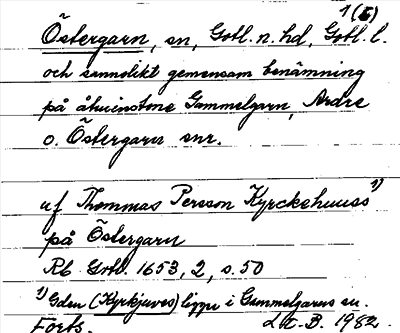 1(5)
Östergarn, sn, Gotl. n. hd, Gotl. l.
och sannolikt gemensam benämning
på åtminstone Gammelgarn, Ardre
o. Östergarn snr.
af Thommas Persson Kyrckehuuss 1)
på Östergarn
Rb Gotl. 1653, 2, s. 50
1) Gden (Kyrkjuves) ligger i Gammelgarns sn.
Forts. 1982.